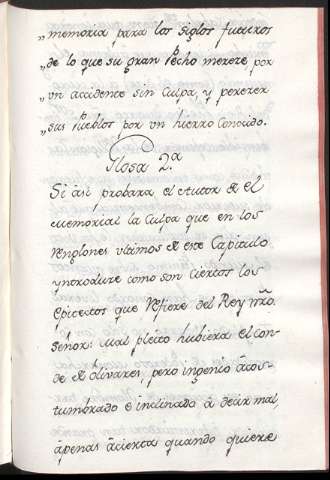 „memoria para los siglos futuros
„de lo que su gran Pecho merece por
„vn accidente sin Culpa, y perecer
„sus Pueblos por vn hierro Conocido.
Glosa 2.ª
Si asi probara el Autor de el
memorial la Culpa que en los
Renglones vltimos de este Capitulo
yntroduce como son ciertos los
Epitectos que Refiere del Rey nrõ.
Señor: mal pleito hubiera el con-
de de olivares, pero ingenio acos-
tumbrado e inclinado á decir mal,
apenas acierta quando quiere